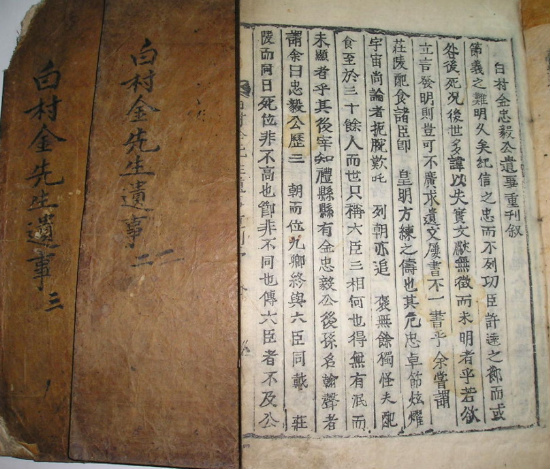 白村金忠毅公遺事重刊叙
節義之難明久矣紀信之忠而不列功臣許遠之節而或
咎後死況後世多諱以失實文獻無徵而未明者乎若欲
立言發明則豈可不廣求遺文屢書不一書乎余嘗謂
莊陵配食諸臣卽 皇明方練之儔也其危忠卓節炫燿
宇宙尚論者扼腕歎吒 列朝亦追 褒無餘獨怪夫配
食至於三十餘人而世只稱六臣三相何也得無有泯而
未顯者乎其後宰知禮縣縣有金忠毅公後孫名翰聲者
謂余曰忠毅公歷三 朝而位九卿終與六臣同戴 莊
陵而同日死位非不高也節非不同也傳六臣者不及公
白村金先生遺事二
白村金先生遺事三